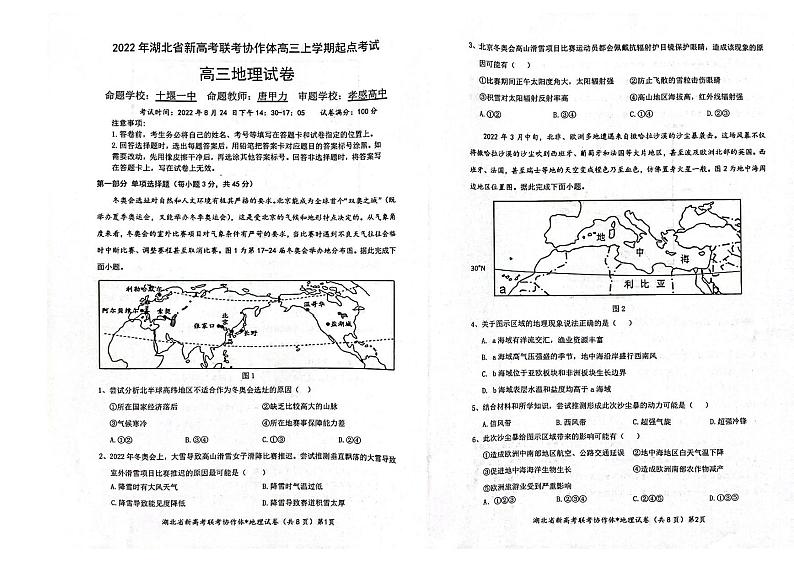 2022年湖北省新高考联考协作体高三上学期起点考试
高三地理试卷
命题学校：十堰一中 命题教师：唐甲力 审题学校：孝感高中
考试时间：2022年8月24日下午14：30-17：05 试卷满分：100分
注意事项：
1.答卷前，考生务必将自己的姓名、考号等填写在答题卡和试卷指定的位置上。
2.回答选择题时，选出每题答案后，用铅笔把答案卡对应题目的答案标号涂黑。如
需要改动，先用橡皮擦干净后，再选涂其他答案标号。回答非选择题时，将答案写
在答题卡上。写在试卷上无效。
第一部分 单项选择题（每小题3分，共45分）
冬奥会选址对自然和人文环境有极其严格的要求。北京就成为全球首个“双奥之城”（既
举办夏季奥运会，又能举办冬季奥运会），这是受北京的气候和地形特点决定的。从气象角
度来看，冬奥会的室外比赛项目对气象条件有严苛的要求，当比赛时遇到不良天气往往会临
时中断比赛、调整赛程甚至取消比赛。图1为第17-24届冬奥会举办地分布图。据此完成下
面小题。
利勒哈默尔
阿尔贝维尔
都灵
索契
张家口
北京
长野
温哥华
盐湖城
图1
1、尝试分析北半球高纬地区不适合作为冬奥会选址的原因（ ）
①所在国家经济落后 ②缺乏比较高大的山脉
③气候寒冷 ④所在地赛事保障能力差
A.①② B.③④ C.①③ D.②④
2、2022年冬奥会上，大雪导致高山滑雪女子滑降比赛推迟。尝试推测垂直飘落的大雪导致
室外滑雪项目比赛推迟的原因最可能是（ ）
A.降雪时有大风天气 B.降雪时气温过低
C.降雪导致能见度低 D.降雪导致赛道积雪太厚
湖北省新高考联考协作体*地理试卷（共8页）第1页
3、北京冬奥会高山滑雪项目比赛运动员都会佩戴抗辐射护目镜保护眼睛，造成该现象的原
因可能有（ ）
①比赛期间正午太阳高度角大，太阳辐射强 ②防止飞散的雪粒击伤眼睛
③积雪对太阳辐射反射率高 ④高山地区海拔高，红外线辐射强
A.①② B.②③ C.①③ D.②④
2022年3月中旬，北非、欧洲多地遭遇来自撒哈拉沙漠的沙尘暴袭击。这场风暴不仅
将撒哈拉沙漠的沙尘吹到西班牙、葡萄牙和法国等大片地区，甚至波及欧洲北部的英国。西
班牙、法国，甚至瑞士等地的天空变成橙色乃至血色，仿佛置身火星一般。图2为地中海周
边地区位置图。据此完成下面小题。
地
中
海
30°N
利比亚
a
b
图2
4、关于图示区域的地理现象说法正确的是（ ）
A. a海域有洋流交汇，渔业资源丰富
B. a海域高气压强盛的季节，地中海沿岸盛行西南风
C. b海域位于亚欧板块和非洲板块生长边界
D. b海域表层水温和盐度均高于a海域
5、结合材料和所学知识，尝试推测形成此次沙尘暴的动力可能是（ ）
A.信风带 B.西风带 C.超强气旋 D.超强冷锋
6、此次沙尘暴给图示区域带来的影响可能有（ ）
①造成欧洲中南部地区航空、公路交通延误 ②地中海地区白天气温下降
③促进地中海海洋生物生长 ④造成欧洲南部农作物减产
⑤欧洲旅游业受到严重影响
A. ①②③ B. ③④⑤ C. ②④⑤ D. ②③④
湖北省新高考联考协作体*地理试卷（共8页）第2页